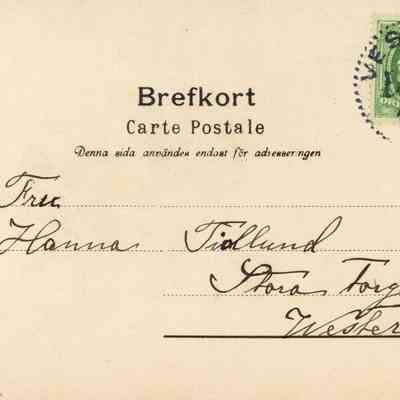 VES
ÖRE
Brefkort
Carte Postale
Denna sida användes endast för adresseringen
Fru
Hanna Tidlund
Stora Torg
Wester